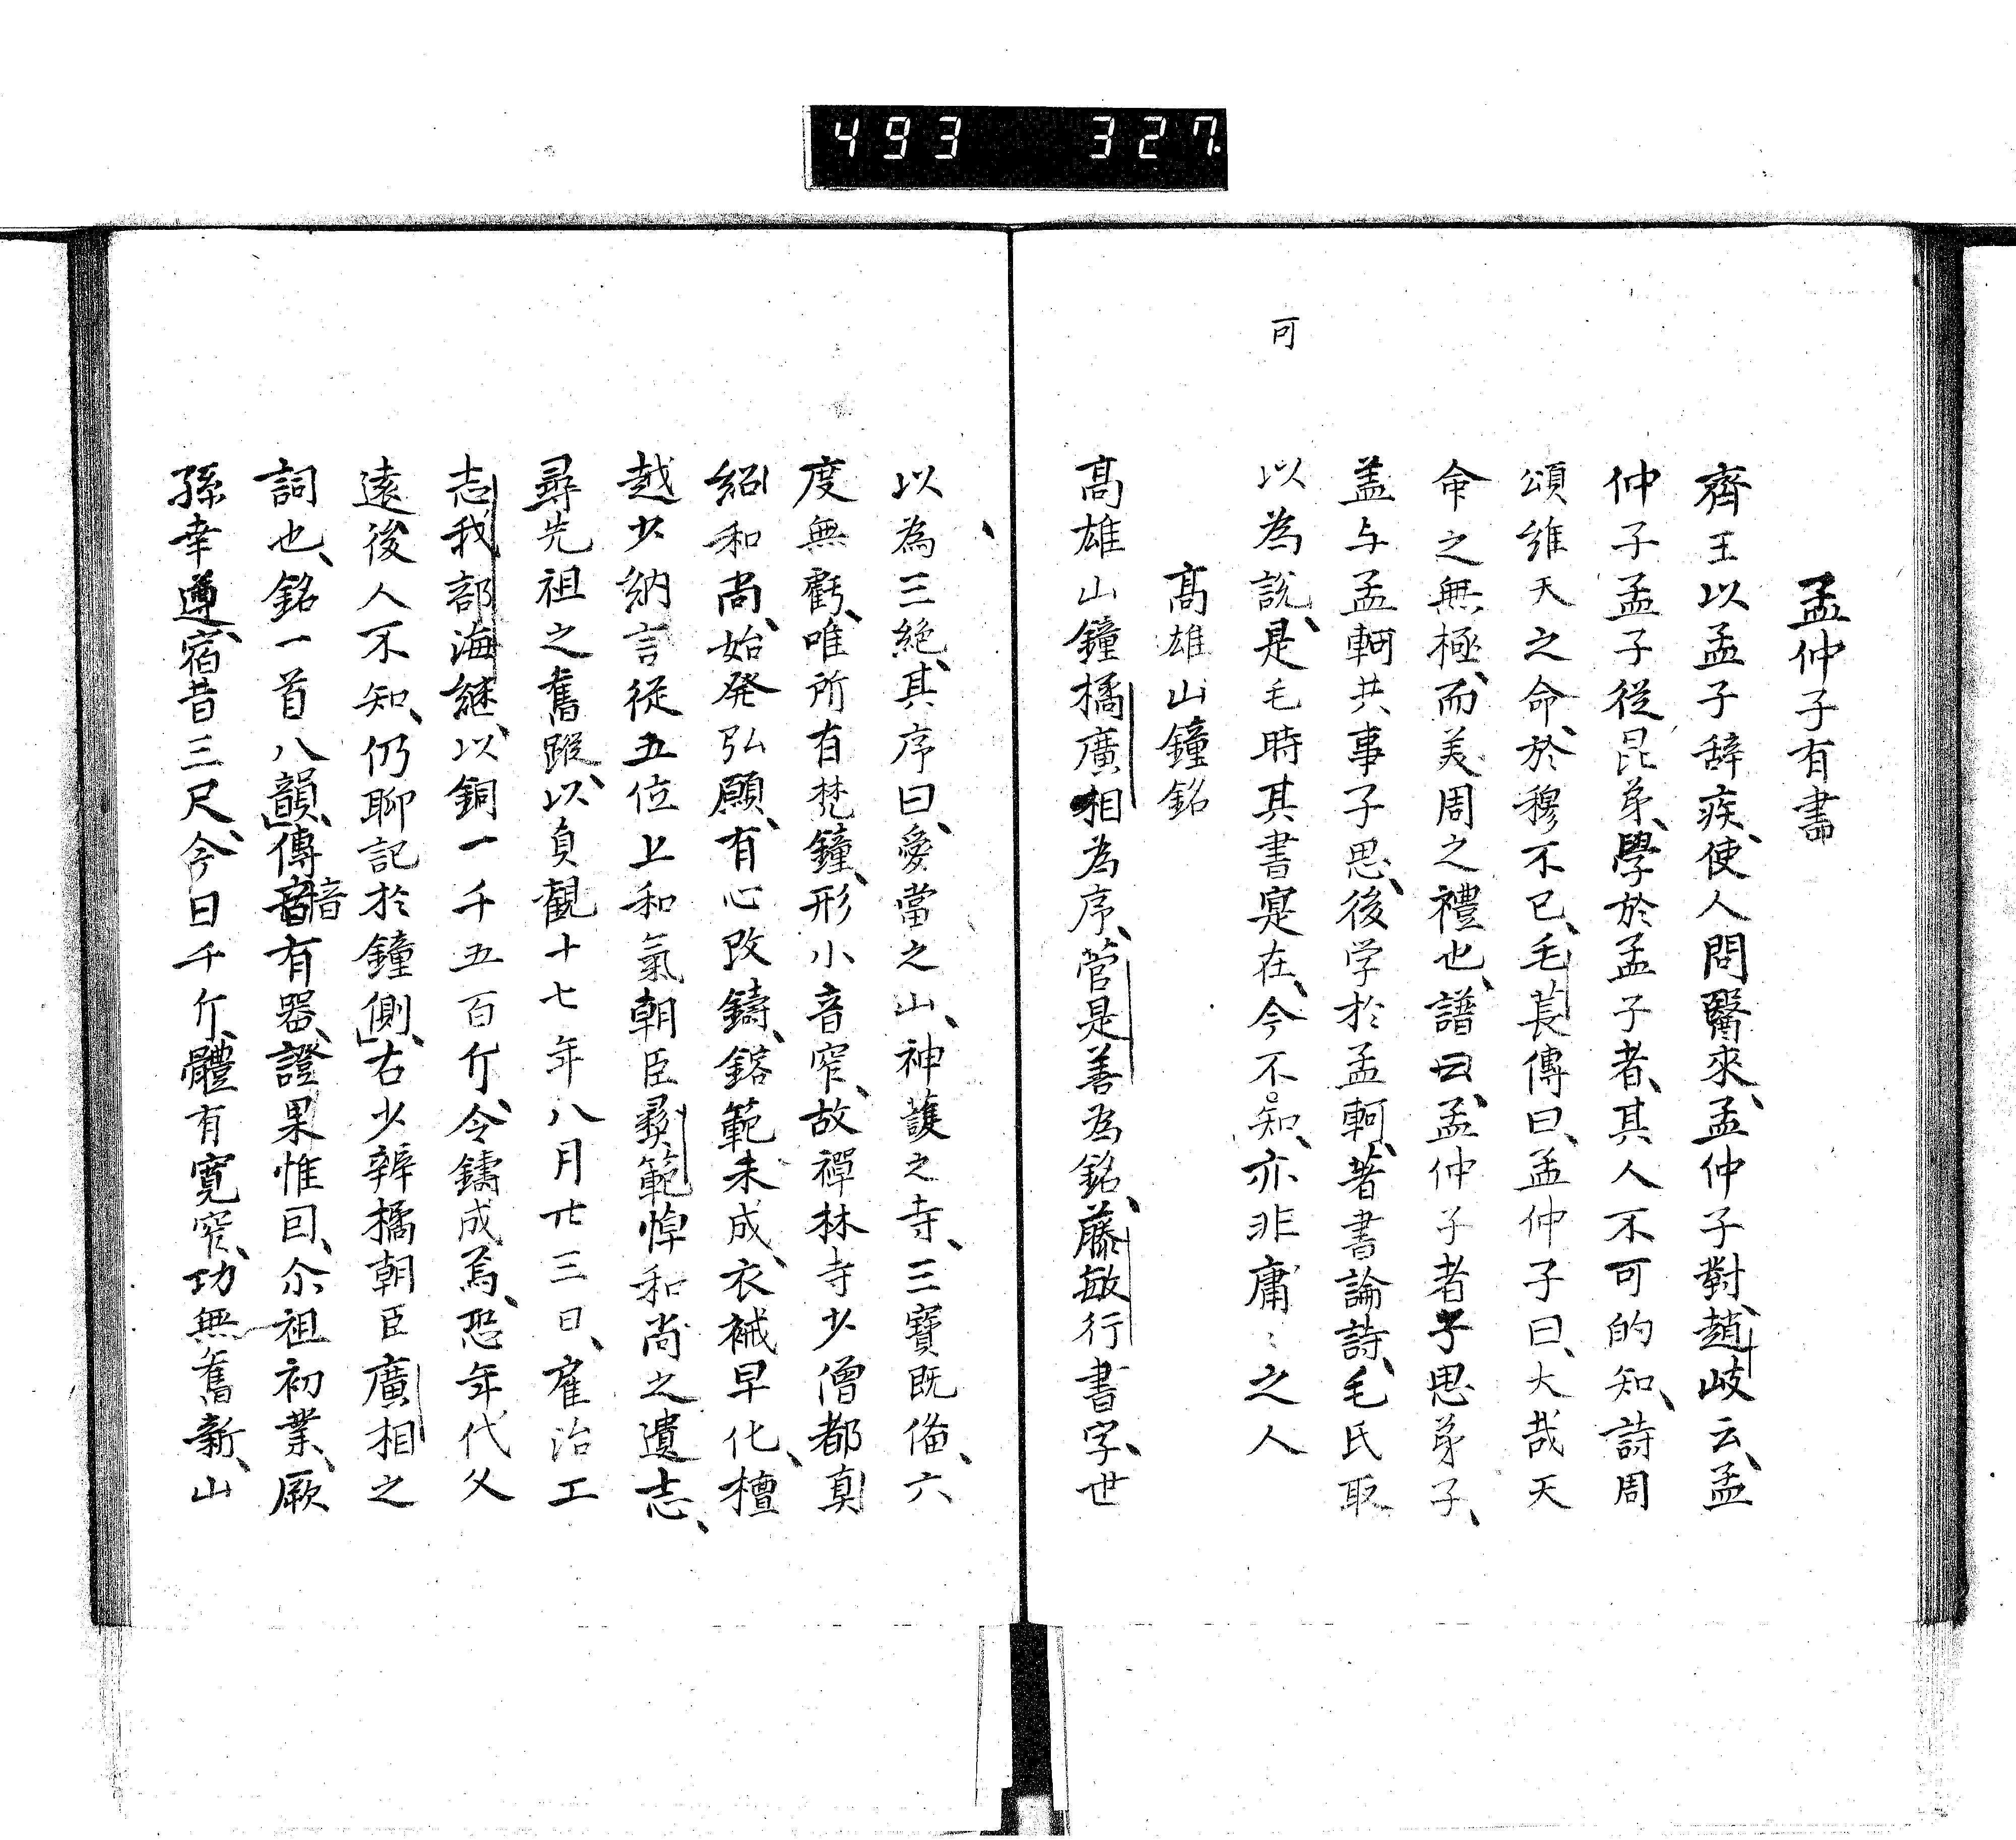 493 327.
孟仲子有書
齊王以孟子辞疾、使人問醫來、孟仲子對、趙岐云、孟
仲子孟子從昆弟、學於孟子者、其人不可的知、詩周
頌維天之命、於穆不已、毛萇傳曰、孟仲子曰、大哉天
命之無極、而美周之禮也、譜曰云、孟仲子者子思弟子、
盖与孟軻共事子思、後学於孟軻、著書論詩、毛氏取
以為說、是毛時其書寔在、今不知、亦非庸〻之人
可
高雄山鐘銘
高雄山鐘橘廣相為序、菅是善為銘、藤敏行書字、世
以為三絶、其序曰、愛當之山、神護之寺、三寶既俻、六
度無虧、唯所有梵鐘、形小音窄、故禪林寺少僧都真
紹和尚、始発弘願、有心改鑄、鎔範未成、衣祴早化、檀
越少納言従五位上和氣朝臣彛範悼和尚之遺志、
尋先祖之舊蹤、以貞観十七年八月廿三日、雇治工
志我部海継、以銅一千五百斤、令鑄成焉、恐年代久
遠後人不知、仍聊記於鐘側、右少辨橘朝臣廣相之
詞也、銘一首八韻、傳音有器、證果惟囙、尒祖初業、厥
音
孫幸遵、宿昔三尺、今日千斤、體有寛窄、功無舊新、山